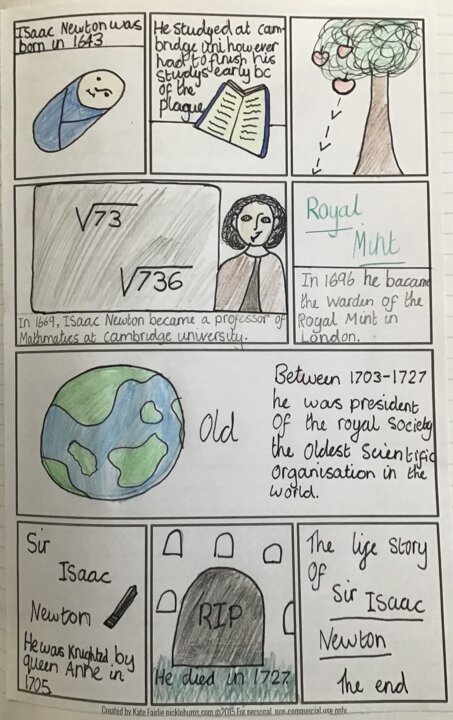 Isaac Newton was
born in 1643
He studyed at cam-
bridge uni however
had to finish his
studys early bc
of the
plague
√73
√736
In 1669, Isaac Newton became a professor of
Mathmatics at Cambridge university.
Royal
Mint
In 1696 he bacame
the Warden of the
Royal Mint in
London.
Old
Between 1703-1727
he was president
Of the royal Society
the Oldest Scientific
Organisation in the
World.
Sir
Isaac
Newton
He was Knighted by
queen Anne in
1705
RIP
He died in 1727
The life Story
Of
Sir Isaac
Newton
The end
Created by Kate Fairlie picklebums.com ©2015 For personal, non-commercial use only